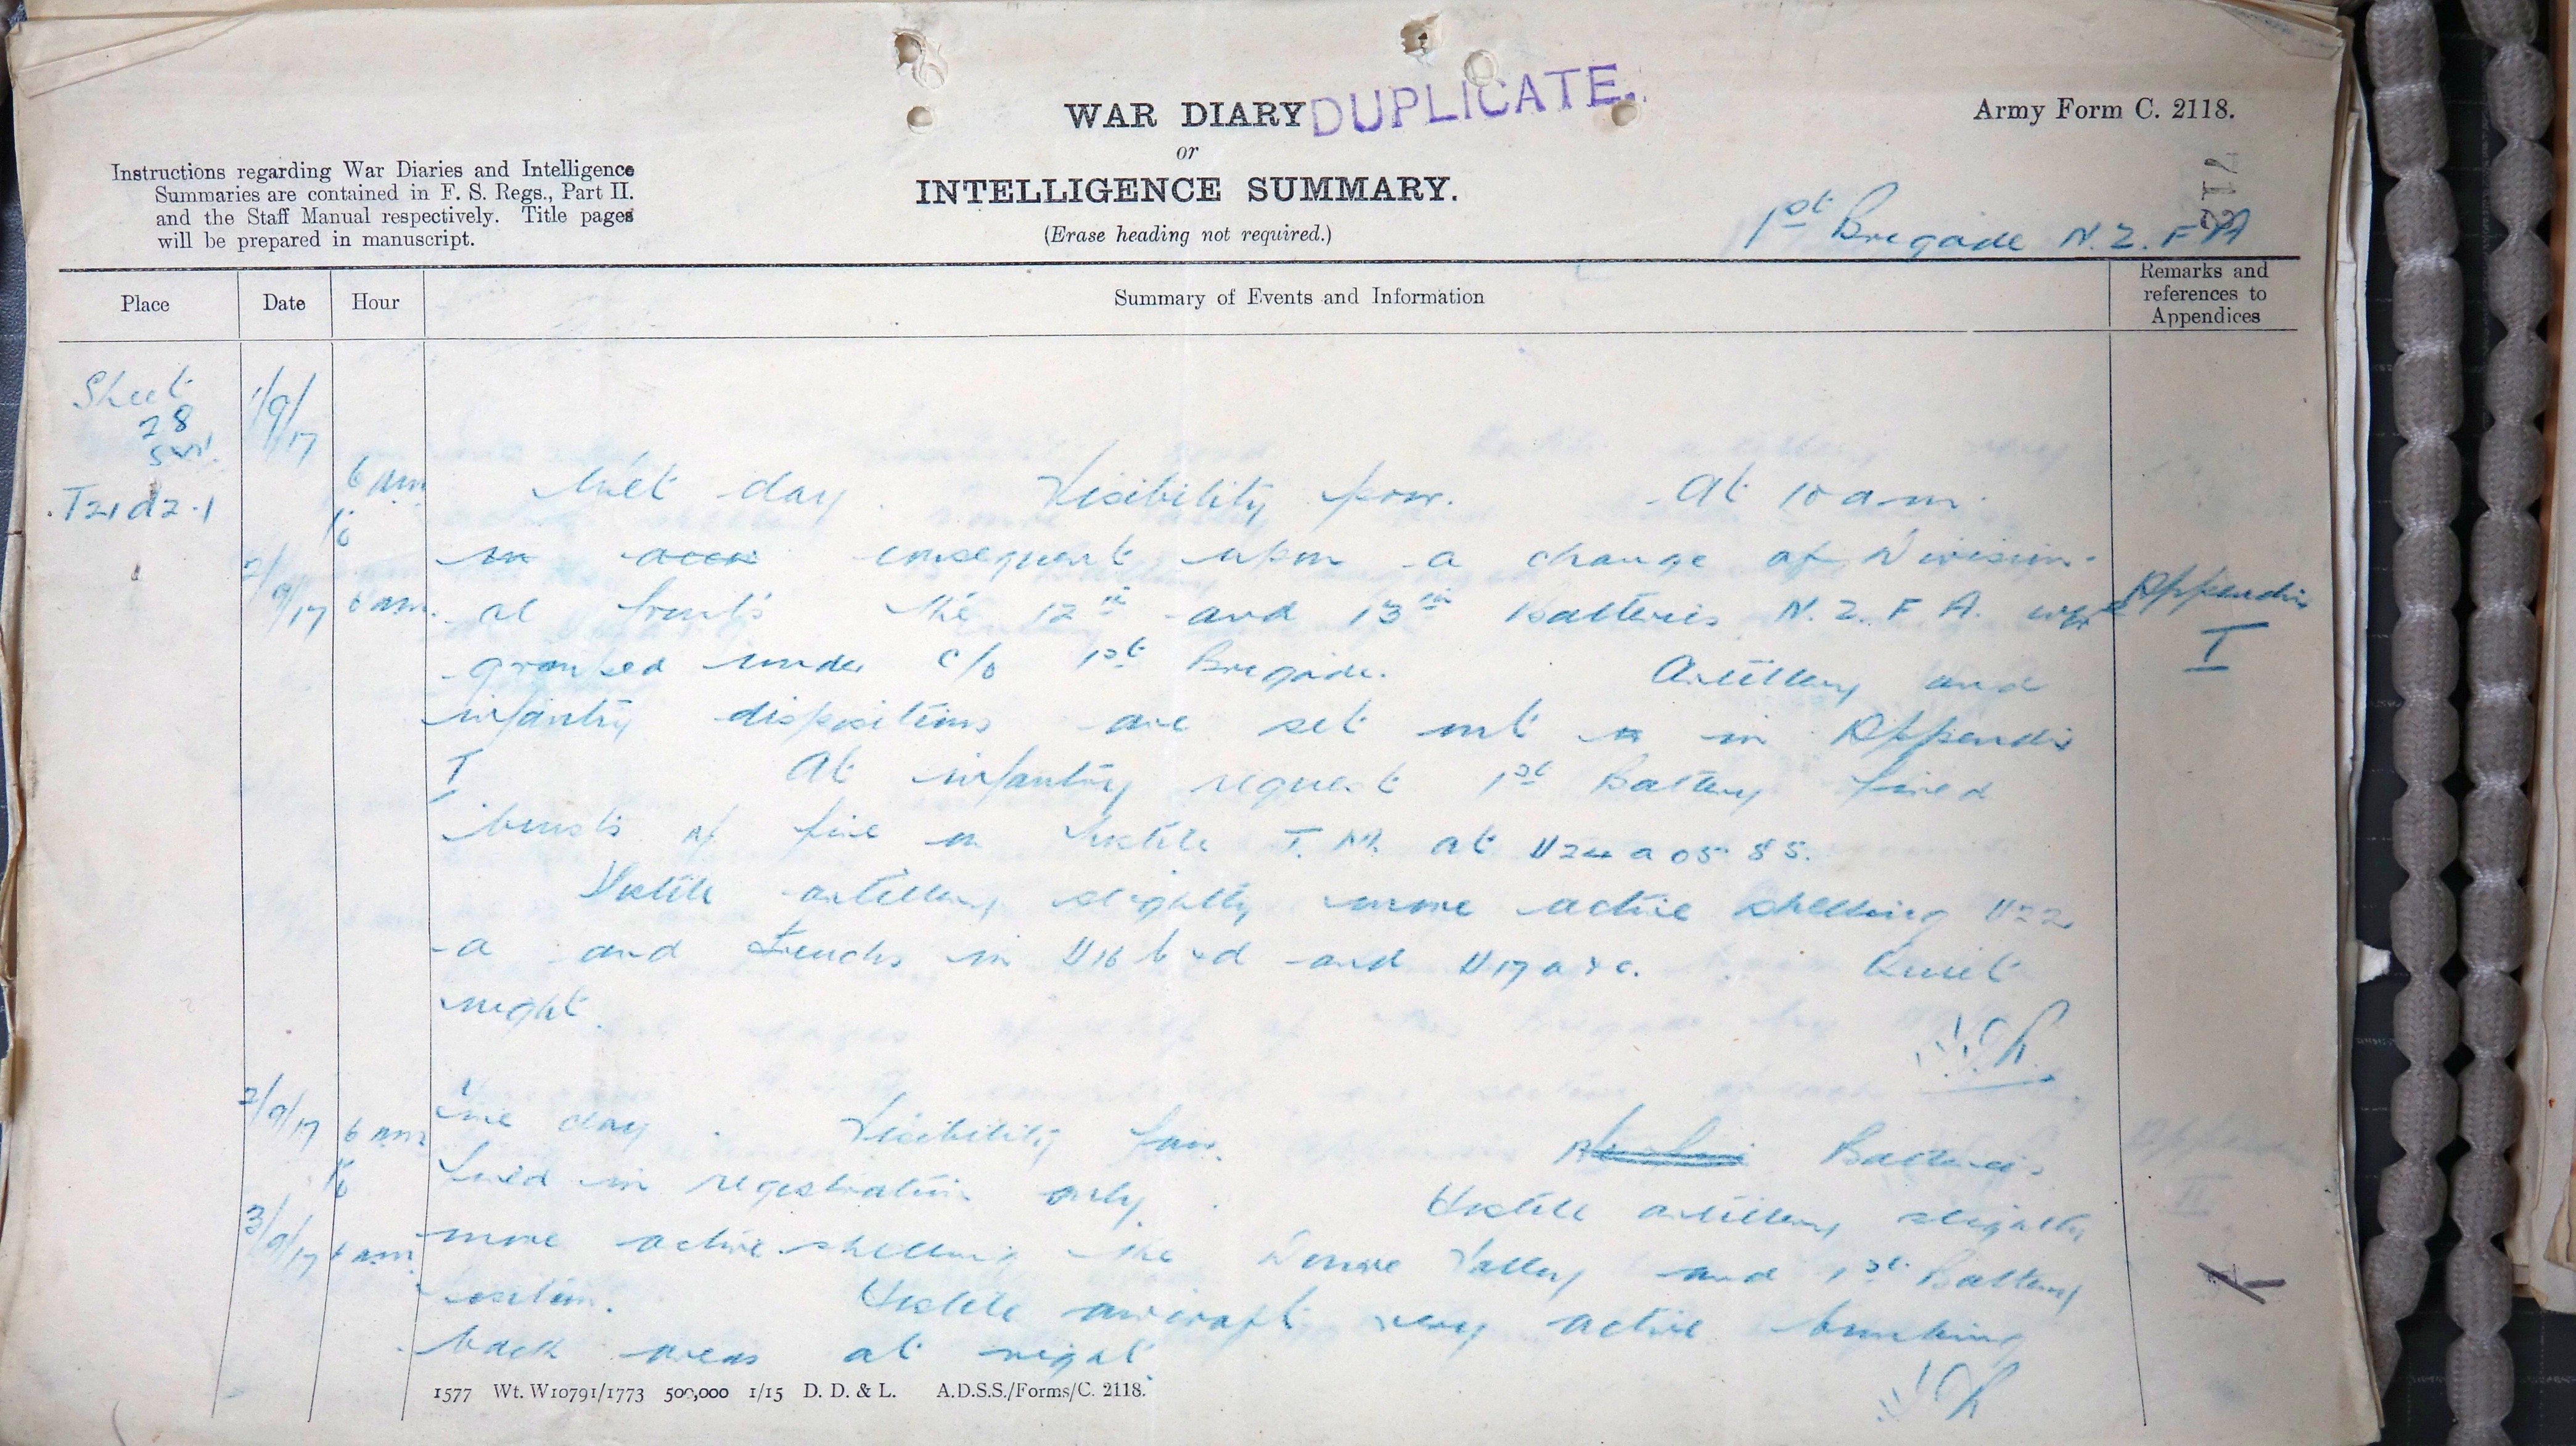 WAR DIARY DUPLICATE.
or
INTELLIGENCE SUMMARY.
(Erase heading not required.)
Army Form C. 2118.
Instructions regarding War Diaries and Intelligence
Summaries are contained in F. S. Regs., Part II.
and the Staff Manual respectively. Title pages
will be prepared in manuscript.
1st Brigade N.Z.F.A
Place Date Hour Summary of Events and Information Remarks and references to Appendices
Sheet 1/9/17
28
SW1.
T21d2.1
6 am Wet day. Visibility poor. At 10 am.
to
in acco consequent upon a change of Division-
2/9/17 6 am. al fronts the 12th and 13th Batteries N.Z.F.A. were Appendix
I
grouped under C/o 1st Brigade. Artillery and
infantry dispositions are set out in Appendix
I At infantry request 1st Battery fired
bursts of fire on hostile T.M. at U24a 05 85.
Hostile artillery slightly more active shelling U22
a and trenches in U16 b & d and U17 a & c. Quiet
night.
2/9/17 6 am Fine day. Visibility fair. Batteries
to
fired in registration only. Hostile artillery slightly
3/9/17 6 am. more active shelling the Douve Valley and 1st Battery
position. Hostile aircraft very active bombing
back areas at night
1577 Wt. W10791/1773 500,000 1/15 D. D. & L. A.D.S.S./Forms/C. 2118.